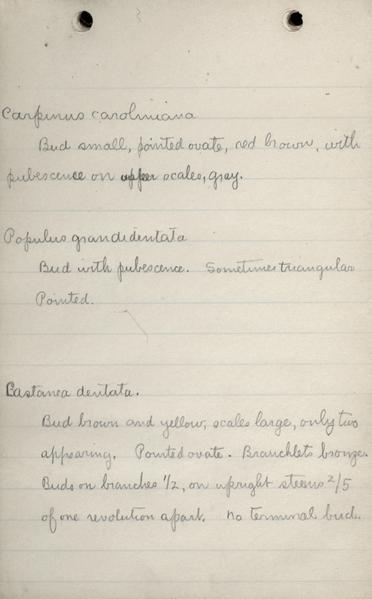 Carpinus caroliniana
Bud small, pointed ovate, red brown, with
pubescence on upper scales, gray.
Populus grandidentata
Bud with pubescence. Sometimes triangular
Pointed.
Castanea dentata.
Bud brown and yellow, scales large, only two
appearing. Pointed ovate. Branchlets bronze.
Buds on branches 1/2, on upright steems 2/5
of one revolution apart. No terminal bud.